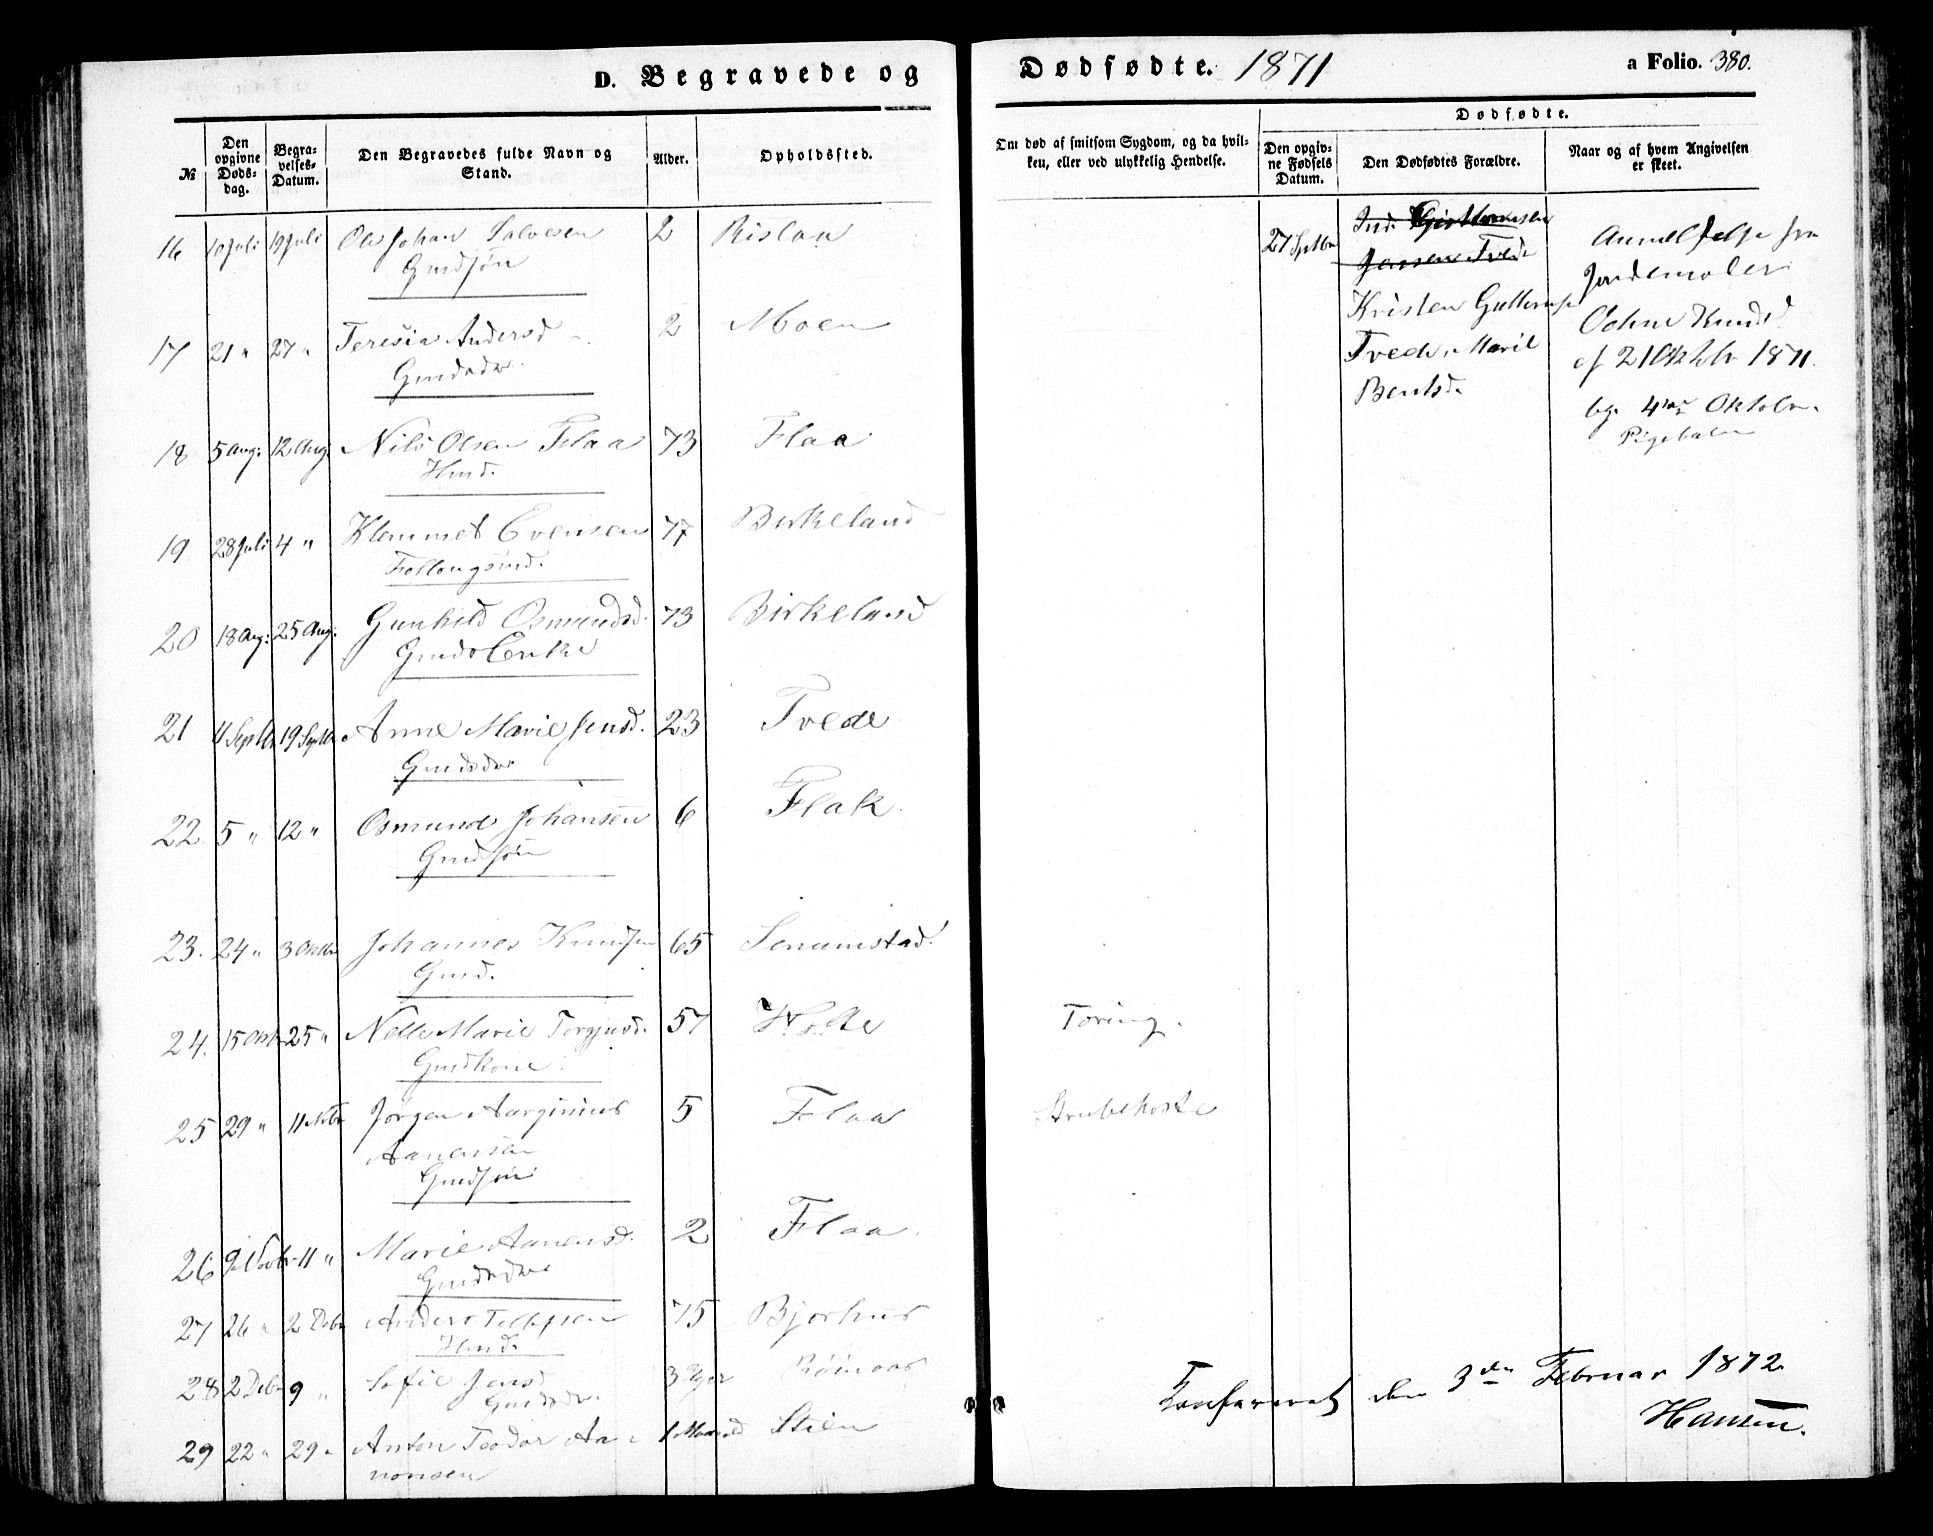 D. Begravede og Dødfødte. 1871
a Folio. 380.
№
Den opgivne Døds-dag.
Begra-velses-Datum.
Den Begravedes fulde Navn og Stand.
Alder.
Opholdssted.
Om død af smitsom Sygdom, og da hvil-
ken, eller ved ulykkelig Hendelse.
Dødfødte.
Den opgiv-ne Fødsels Datum.
Den Dødfødtes Forældre.
Naar og af hvem Angivelsen
er skeet.
16 10 Juli 19 Juli Ole Johan Salvesen 2 Rislaa
Gmdsøn
17 21 " 27 " Teresia Andersd 2 Moen
Gmdsdtr.
18 5 Aug: 12 Aug. Nils Olsen Flaa 73 Flaa
Hmd.
19 28 Juli 4 " Klemmet Evensen 77 Birkeland
Follougsmd.
20 18 Aug: 25 Aug: Gunhild Osmundsd. 73 Birkeland
Gmds Enke
21 11 Septbr 19 Septbr Anne Marie Jensd. 23 Tvede
Gmdsdtr
22 5 " 12 " Osmund Johansen 6 Flak.
Gmdsøn
23. 24 " 3 Oktbr Johannes Knudsen 65 Senumstad.
Gmd.
24. 15 Oktb 25 " Nelle Marie Torgjusd. 57 Holte Tæring.
Gmdkone.
25 29 " 11 Nvbr Jørgen Aarginius 5 Flaa Strubehoste
Aanensen
Gmdsøn
26 9 Novbr 11 " Marie Aanensd. 2 Flaa.
Gmdsdtr
27 26 " 2 Debr Anders Tellefsen 75 Bjorhus
Hmd.
28 2 Debr 9 " Sofie Jensd 3
Gmdsdtr.
29 22 " 29 " Anton Teodor Aa- 1 Maaned Stien
nonsen
27 Septbr
Jensen Tvede
Kristen Guttormsen
Tvede, Marie
Bentsd.
Anmeldelse fra
Jordemoder
Knudsd
af 2 Oktbr 1871.
bg. 4de Oktober.
Pigebarn
Konfereret den 3die Februar 1872
Hansen.